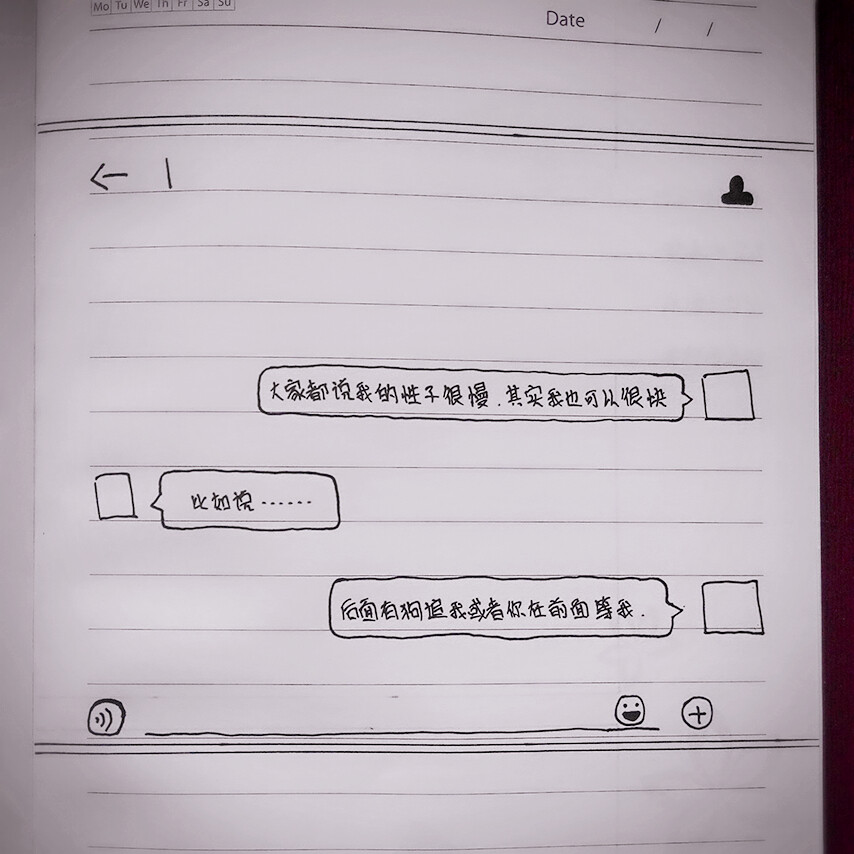 Mo Tu We Th Fr Sa Su
Date / /
大家都说我的性子很慢.其实我也可以很快
比如说……
后面有狗追我或者你在前面等我.